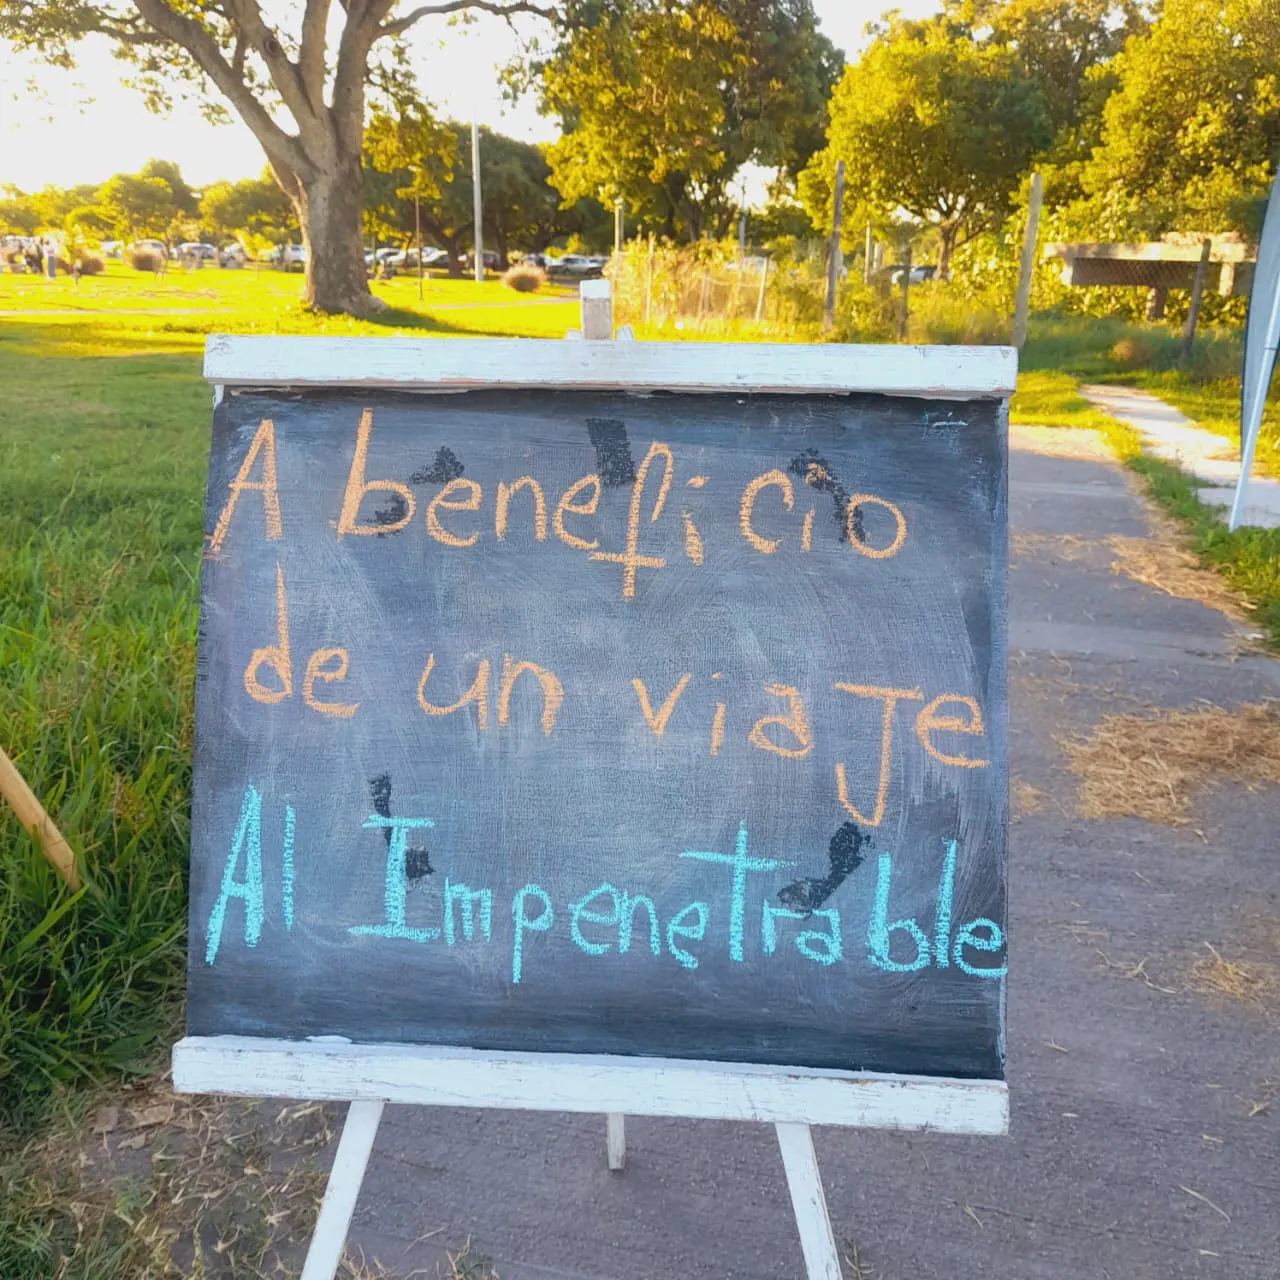 A beneficio
de un viaje
Al Impenetrable